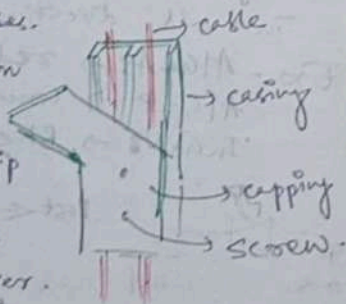 cable
casing
capping
screw.